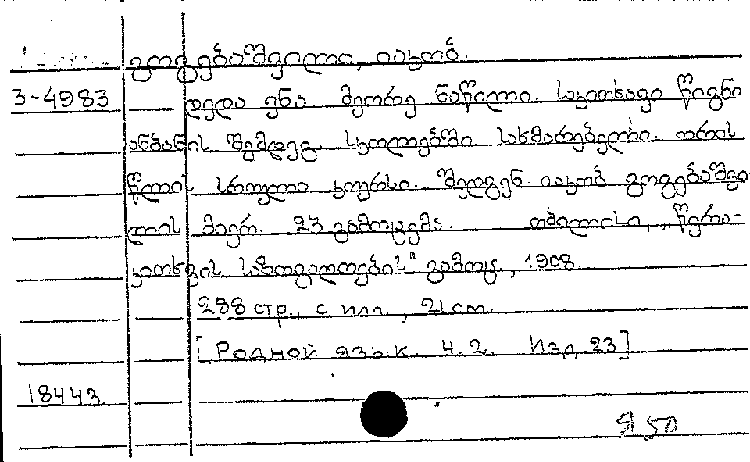 გოგებაშვილი, იაკობ.
3-4983 დედა ენა მეორე ნაწილი. საკითხავი წიგნი
ანბანის შემდეგ სკოლებში სახმარებელი. ორის
წლის სრული კურსი. შედგენ. იაკობ გოგებაშვი
ლის მიერ. 23 გამოცემა. თბილისი, „წერა-
კითხვის საზოგადოების" გამოც, 1908
288 стр., с илл., 21 cm.
[Родной язык. Ч. 2. Изд 23]
18443
Я 50